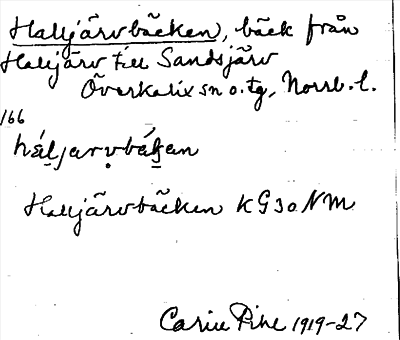 Halljärvbäcken, bäck från
Halljärv till Sandsjärv
Överkalix sn o. tg, Norrb. l.
166
hál̠jarvbák̠en
Halljärvbäcken KG30NM
Carin Pihl 1919-27